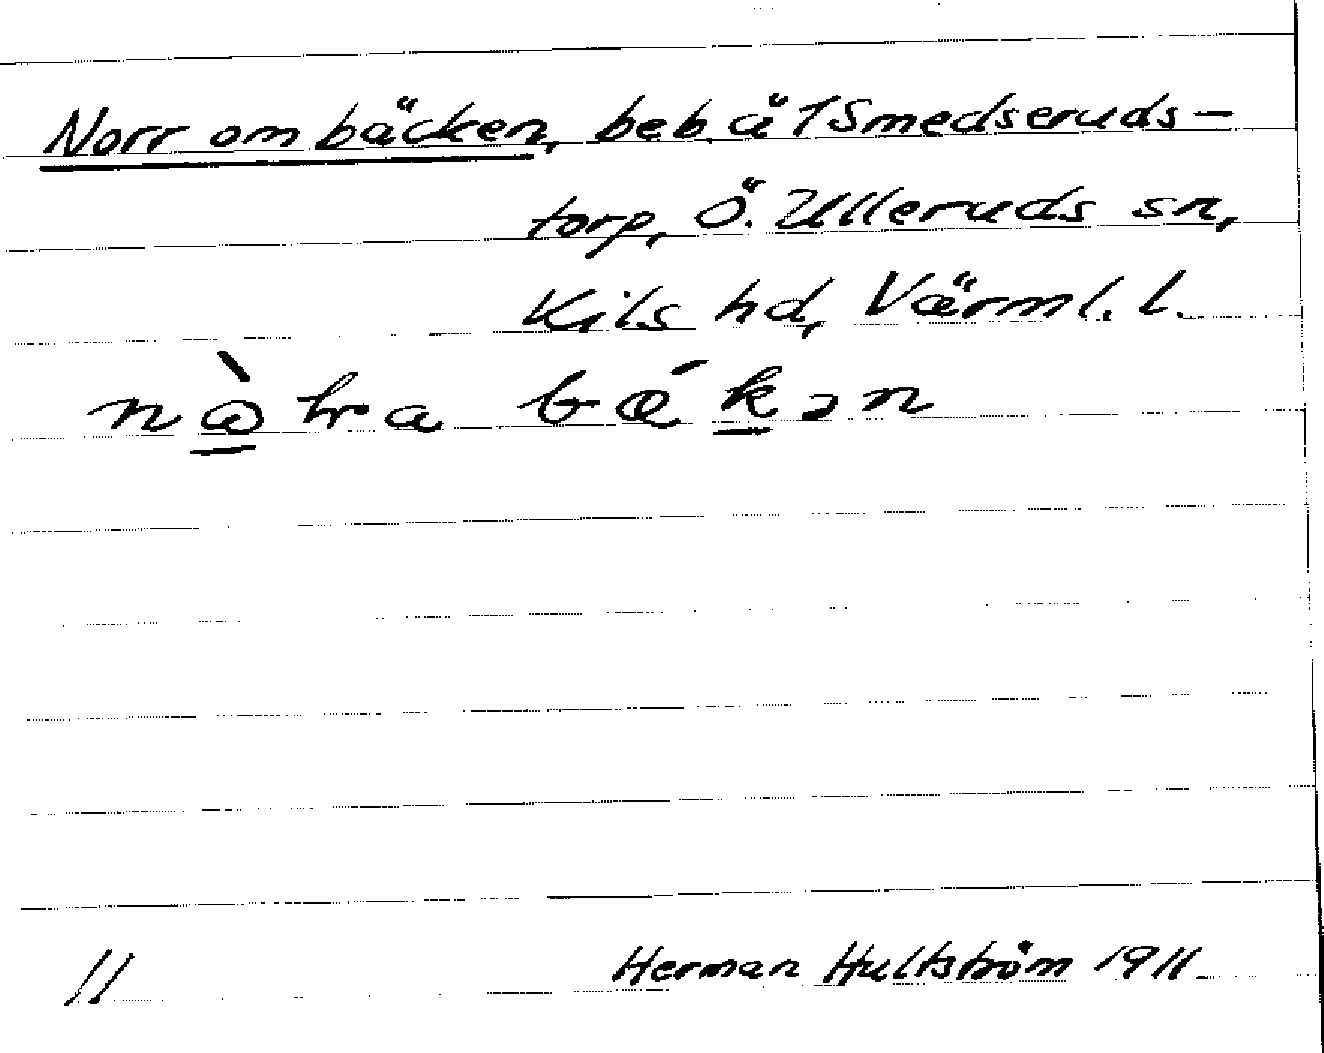 Norr om bäcken, beb. å 1 Smedseruds-
torp, Ö. Ulleruds sn,
Kils hd, Värml. l.
nὰ̱hra bǽḵən
11 Herman Hultström 1911